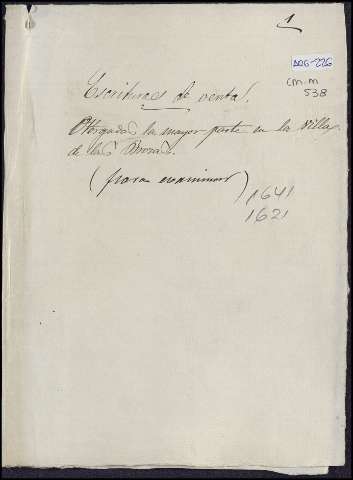 1
DDG-226
CM-M
538
Escrituras de venta.
Otorgadas la mayor parte en la Villa
de las Borjas.
(para examinar)
1641
1621